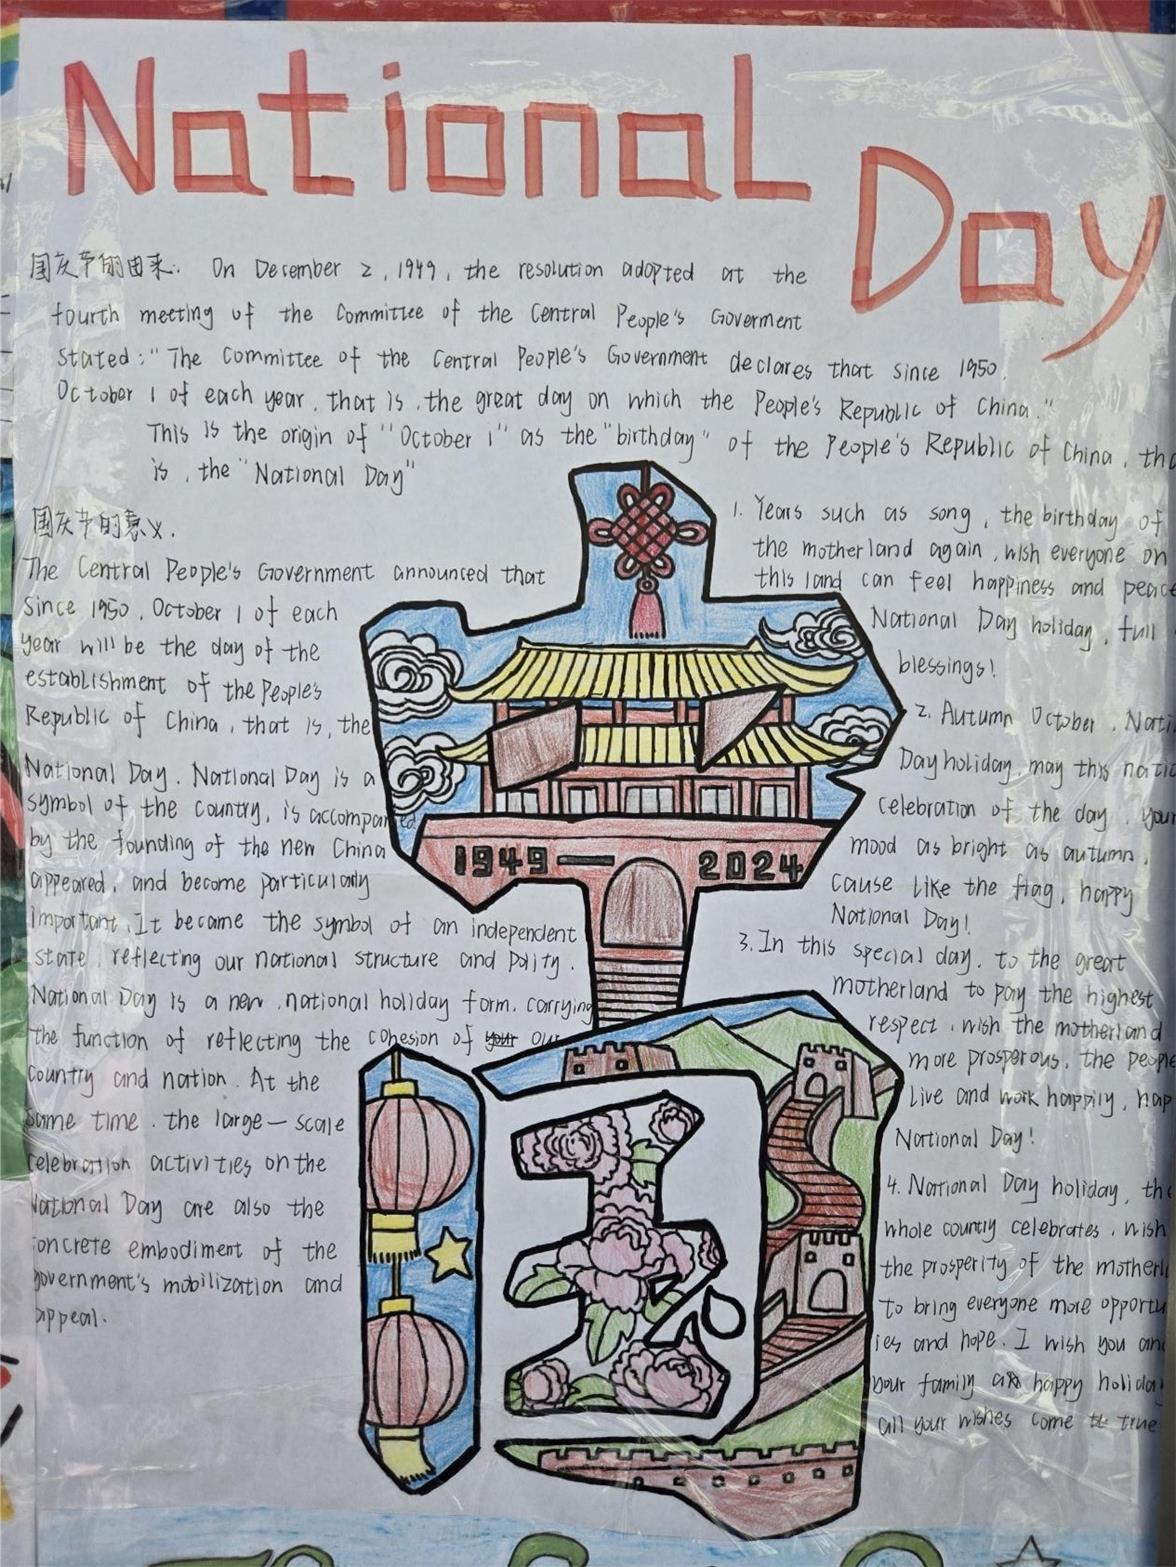 National Day
国庆节的由来. On December 2, 1949, the resolution adopted at the
fourth meeting of the Committee of the Central People's Goverment
stated: "The Committee of the Central People's Government declares that since 1950
October 1 of each year, that is, the great day on which the People's Republic of China."
This is the origin of "October 1" as the "birthday" of the People's Republic of China, tha
is, the "National Day"
国庆节的意义.
The Central People's Government announced that
since 1950, October 1 of each
year will be the day of the
establishment of the People's
Republic of China, that is, the
National Day. National Day is a
symbol of the country, is accompanied
by the founding of the new China
appeared, and become particularly
important. It became the symbol of an independent
state, reflecting our national structure and polity.
National Day is a new, national holiday form, carrying
the function of reflecting the cohesion of our
country and nation. At the
same time, the large-scale
celebration activities on the
National Day are also the
concrete embodiment of the
government's mobilization and
appeal.
1949—2024
中国
1. Years such as song, the birthday of
the motherland again, wish everyone on
this land can feel happiness and peace
National Day holiday, full
blessings!
2. Autumn October, Nati
Day holiday, may this natio
celebration of the day, your
mood as bright as autumn,
cause like the flag, happy
National Day!
3. In this special day, to the great
motherland to pay the highest
respect, wish the motherland
more prosperous, the people
live and work happily, hap
National Day!
4. National Day holiday, the
whole country celebrates, wish
the prosperity of the motherl
to bring everyone more opportu
ies and hope. I wish you and
your family a happy holiday
all your wishes come true